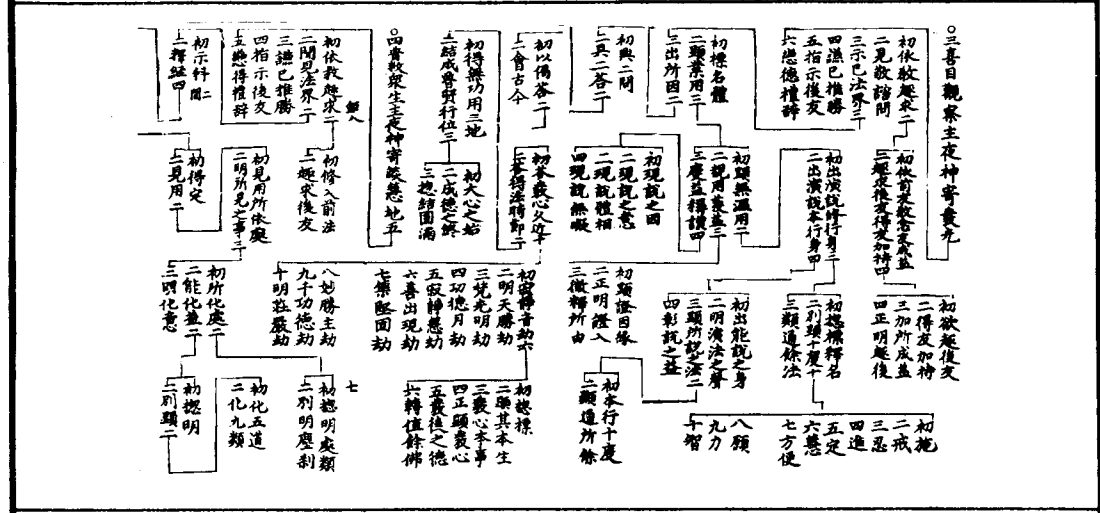 ○三喜目觀察主夜神寄發光
初依教趣求二
二見敬諮問
三示己法界三
四謙己推勝
五指示後友
六戀德禮辭
初依前友教念友成益
二趣求後友得友加持四
初欲趣後友
二得友加持
三加所成益
四正明趣後
初標名體
二顯業用三
三出所因二
初出演說修行身三
二出演說本行身四
初總標釋名
二別顯十度十
三類通餘法
初施
二戒
三忍
四進
五定
六慧
七方便
八願
九力
十智
二說用廣益三
三慶益稱讚四
初出能說之身
二明演法之聲
三顯所說之法二
四彰說之益
初本行十度
二顯通所餘
初現說之因
二現說之意
三現說體相
四現說無礙
初顯證因緣
二正明證入
三徵釋所由
初興二問
二具二答二
初以偈答二
二會古今
初答發心久近十
二答得法時節二
初寂靜音劫六
二明天勝劫
三梵光明劫
四功德月劫
五寂靜慧劫
六喜出現劫
七集堅固劫
八妙勝主劫
九千功德劫
十明莊嚴劫
初總標
二顯其本生
三發心本事
四正顯發心
五發後之德
六轉值餘佛
初得無功用三地
二結成尊賢行位三
初大心之始
二成德之終
三總結圓滿
○四普救眾生主夜神寄燄慧地五
初依教趣求二
二聞見法界二
三謙己推勝
四指示後友
五戀德禮辭
初修入前法
二趣求後友
初示科門二
二釋經四
初得定
二見用二
初見用所依處
二明所見之事三
初所化處二
二能化益二
三明化意
七
初總明處類
二別明塵剎
初化五道
二化九類
初總明
二別顯二